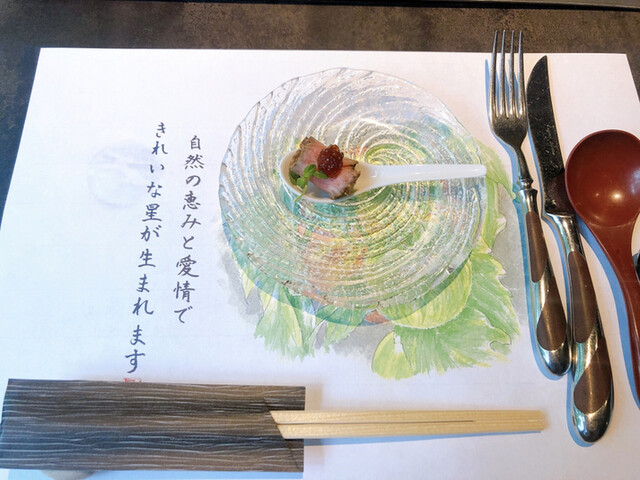 自然の恵みと愛情で
きれいな星が生まれます